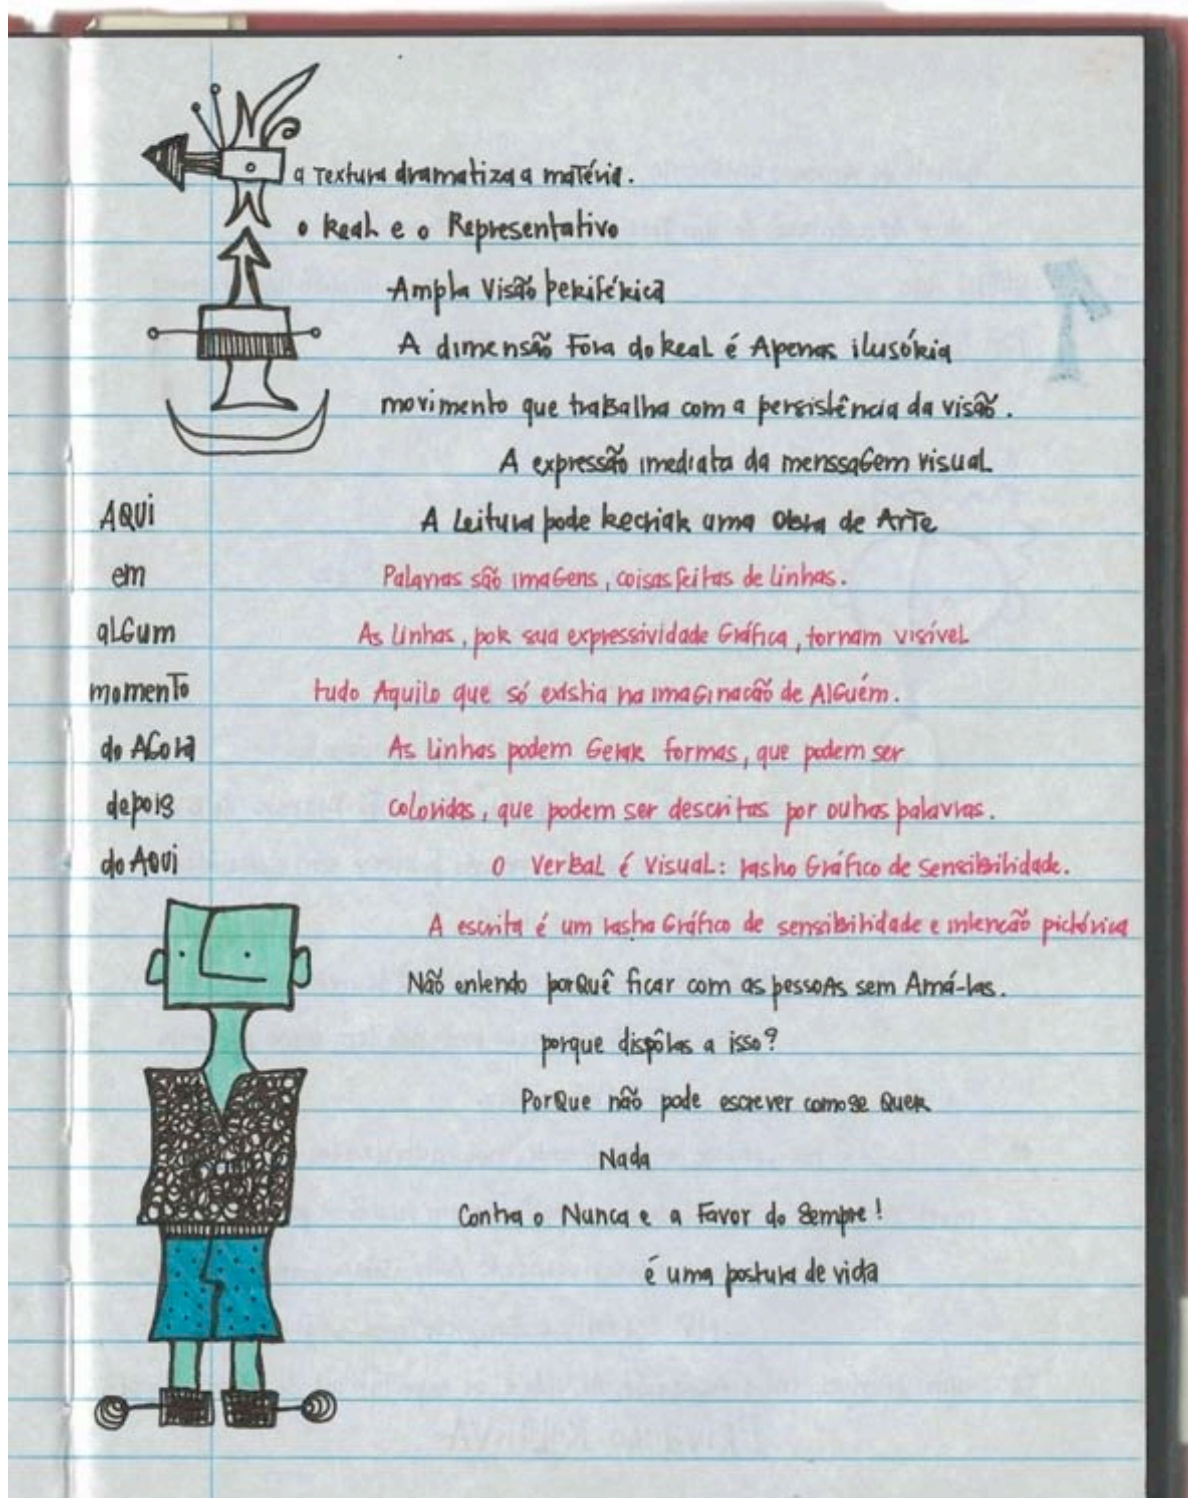 a Textura dramatiza a matéria.
o Real e o Representativo
Ampla Visão periférica
A dimensão Fora do Real é Apenas ilusória
movimento que traBalha com a persistência da visão.
A expressão imediata da menssaGem visual
AQUi
A Leitura pode Recriar uma Obra de Arte
em
Palavras são imaGens, coisas feitas de Linhas.
aLGum
As Linhas, por sua expressividade Gráfica, tornam visível
momenTo
tudo Aquilo que só existia na imaGinacão de AlGuém.
do AGora
As Linhas podem Gerar formas, que podem ser
depois
coloridas, que podem ser descritas por outras palavras.
do AQUi
O VerBal é Visual: rastro Gráfico de SensiBilidade.
A escrita é um rastro Gráfico de sensiBilidade e intencão pictórica
Não entendo porQuê ficar com as pessoAs sem Amá-las.
porque dispôlas a isso?
PorQue não pode escrever como se Quer
Nada
Contra o Nunca e a Favor do Sempre!
é uma postura de vida